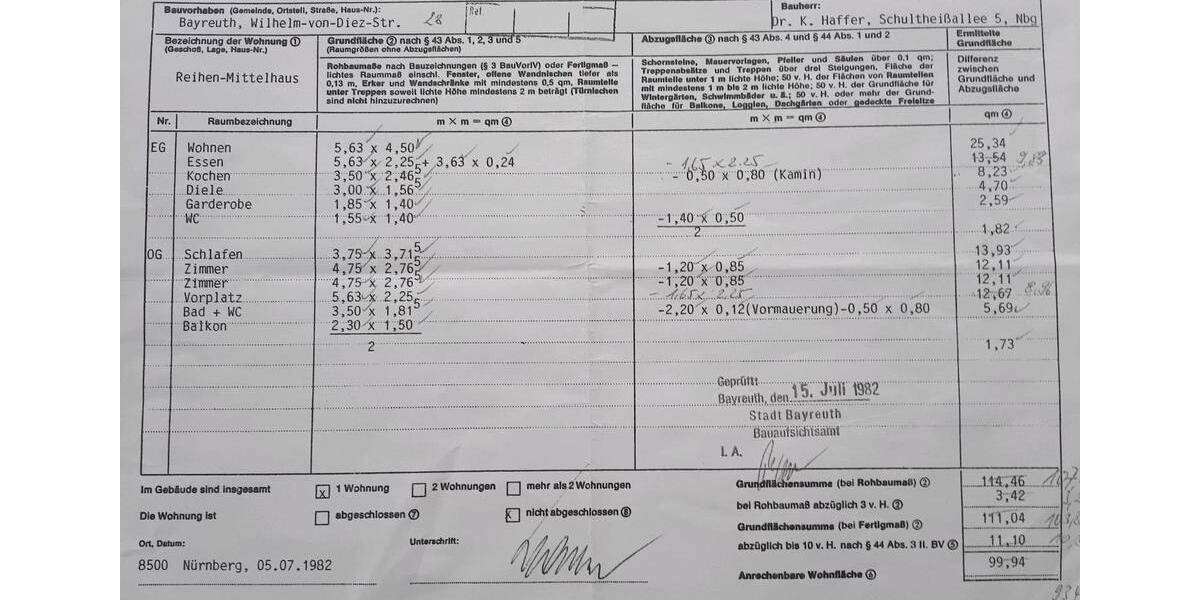 Bauvorhaben (Gemeinde, Ortsteil, Straße, Haus-Nr.):
Bayreuth, Wilhelm-von-Diez-Str. 28
Bauherr:
Dr. K. Haffer, Schultheißallee 5, Nbg
Bezeichnung der Wohnung ①
(Geschoß, Lage, Haus-Nr.)
Reihen-Mittelhaus
Grundfläche ② nach § 43 Abs. 1, 2, 3 und 5
(Raumgrößen ohne Abzugsflächen)
Rohbaumaße nach Bauzeichnungen (§ 3 BauVorlV) oder Fertigmaß –
lichtes Raummaß einschl. Fenster, offene Wandnischen tiefer als
0,13 m, Erker und Wandschränke mit mindestens 0,5 qm, Raumteile
unter Treppen soweit lichte Höhe mindestens 2 m beträgt (Türnischen
sind nicht hinzurechnen)
Abzugsfläche ③ nach § 43 Abs. 4 und § 44 Abs. 1 und 2
Schornsteine, Mauervorlagen, Pfeiler und Säulen über 0,1 qm;
Treppenabsätze und Treppen über drei Steigungen, Fläche der
Raumteile unter 1 m lichte Höhe; 50 v. H. der Flächen von Raumteilen
mit mindestens 1 m bis 2 m lichte Höhe; 50 v. H. der Grundfläche für
Wintergärten, Schwimmbäder u. ä.; 50 v. H. oder mehr der Grund-
fläche für Balkone, Loggien, Dachgärten oder gedeckte Freisitze
Ermittelte
Grundfläche
Differenz
zwischen
Grundfläche und
Abzugsfläche
Nr. Raumbezeichnung m × m = qm ④ m × m = qm ④ qm ④
EG Wohnen 5,63 x 4,50 25,34
Essen 5,63 x 2,25 + 3,63 x 0,24 - 1,65 x 2.25 13,54 9,83
Kochen 3,50 x 2,465 - 0,50 x 0,80 (Kamin) 8,23
Diele 3,00 x 1,565 4,70
Garderobe 1,85 x 1,40 2,59
WC 1,55 x 1,40 -1,40 x 0,50
2 1,82
OG Schlafen 3,75 x 3,715 13,93
Zimmer 4,75 x 2,765 -1,20 x 0,85 12,11
Zimmer 4,75 x 2,765 -1,20 x 0,85 12,11
Vorplatz 5,63 x 2,25 - 1,65 x 2.25 12,67 8.96
Bad + WC 3,50 x 1,815 -2,20 x 0,12(Vormauerung)-0,50 x 0,80 5,69
Balkon 2,30 x 1,50
2 1,73
Geprüft:
Bayreuth, den 15. Juli 1982
Stadt Bayreuth
Bauaufsichtsamt
I. A.
Im Gebäude sind insgesamt x 1 Wohnung 2 Wohnungen mehr als 2 Wohnungen
Die Wohnung ist abgeschlossen ⑦ x nicht abgeschlossen ⑧
Grundflächensumme (bei Rohbaumaß) ② 114,46
bei Rohbaumaß abzüglich 3 v. H. ② 3,42
Grundflächensumme (bei Fertigmaß) ② 111,04
abzüglich bis 10 v. H. nach § 44 Abs. 3 II. BV ⑤ 11,10
Anrechenbare Wohnfläche ⑥ 99,94
Ort, Datum:
8500 Nürnberg, 05.07.1982
Unterschrift: